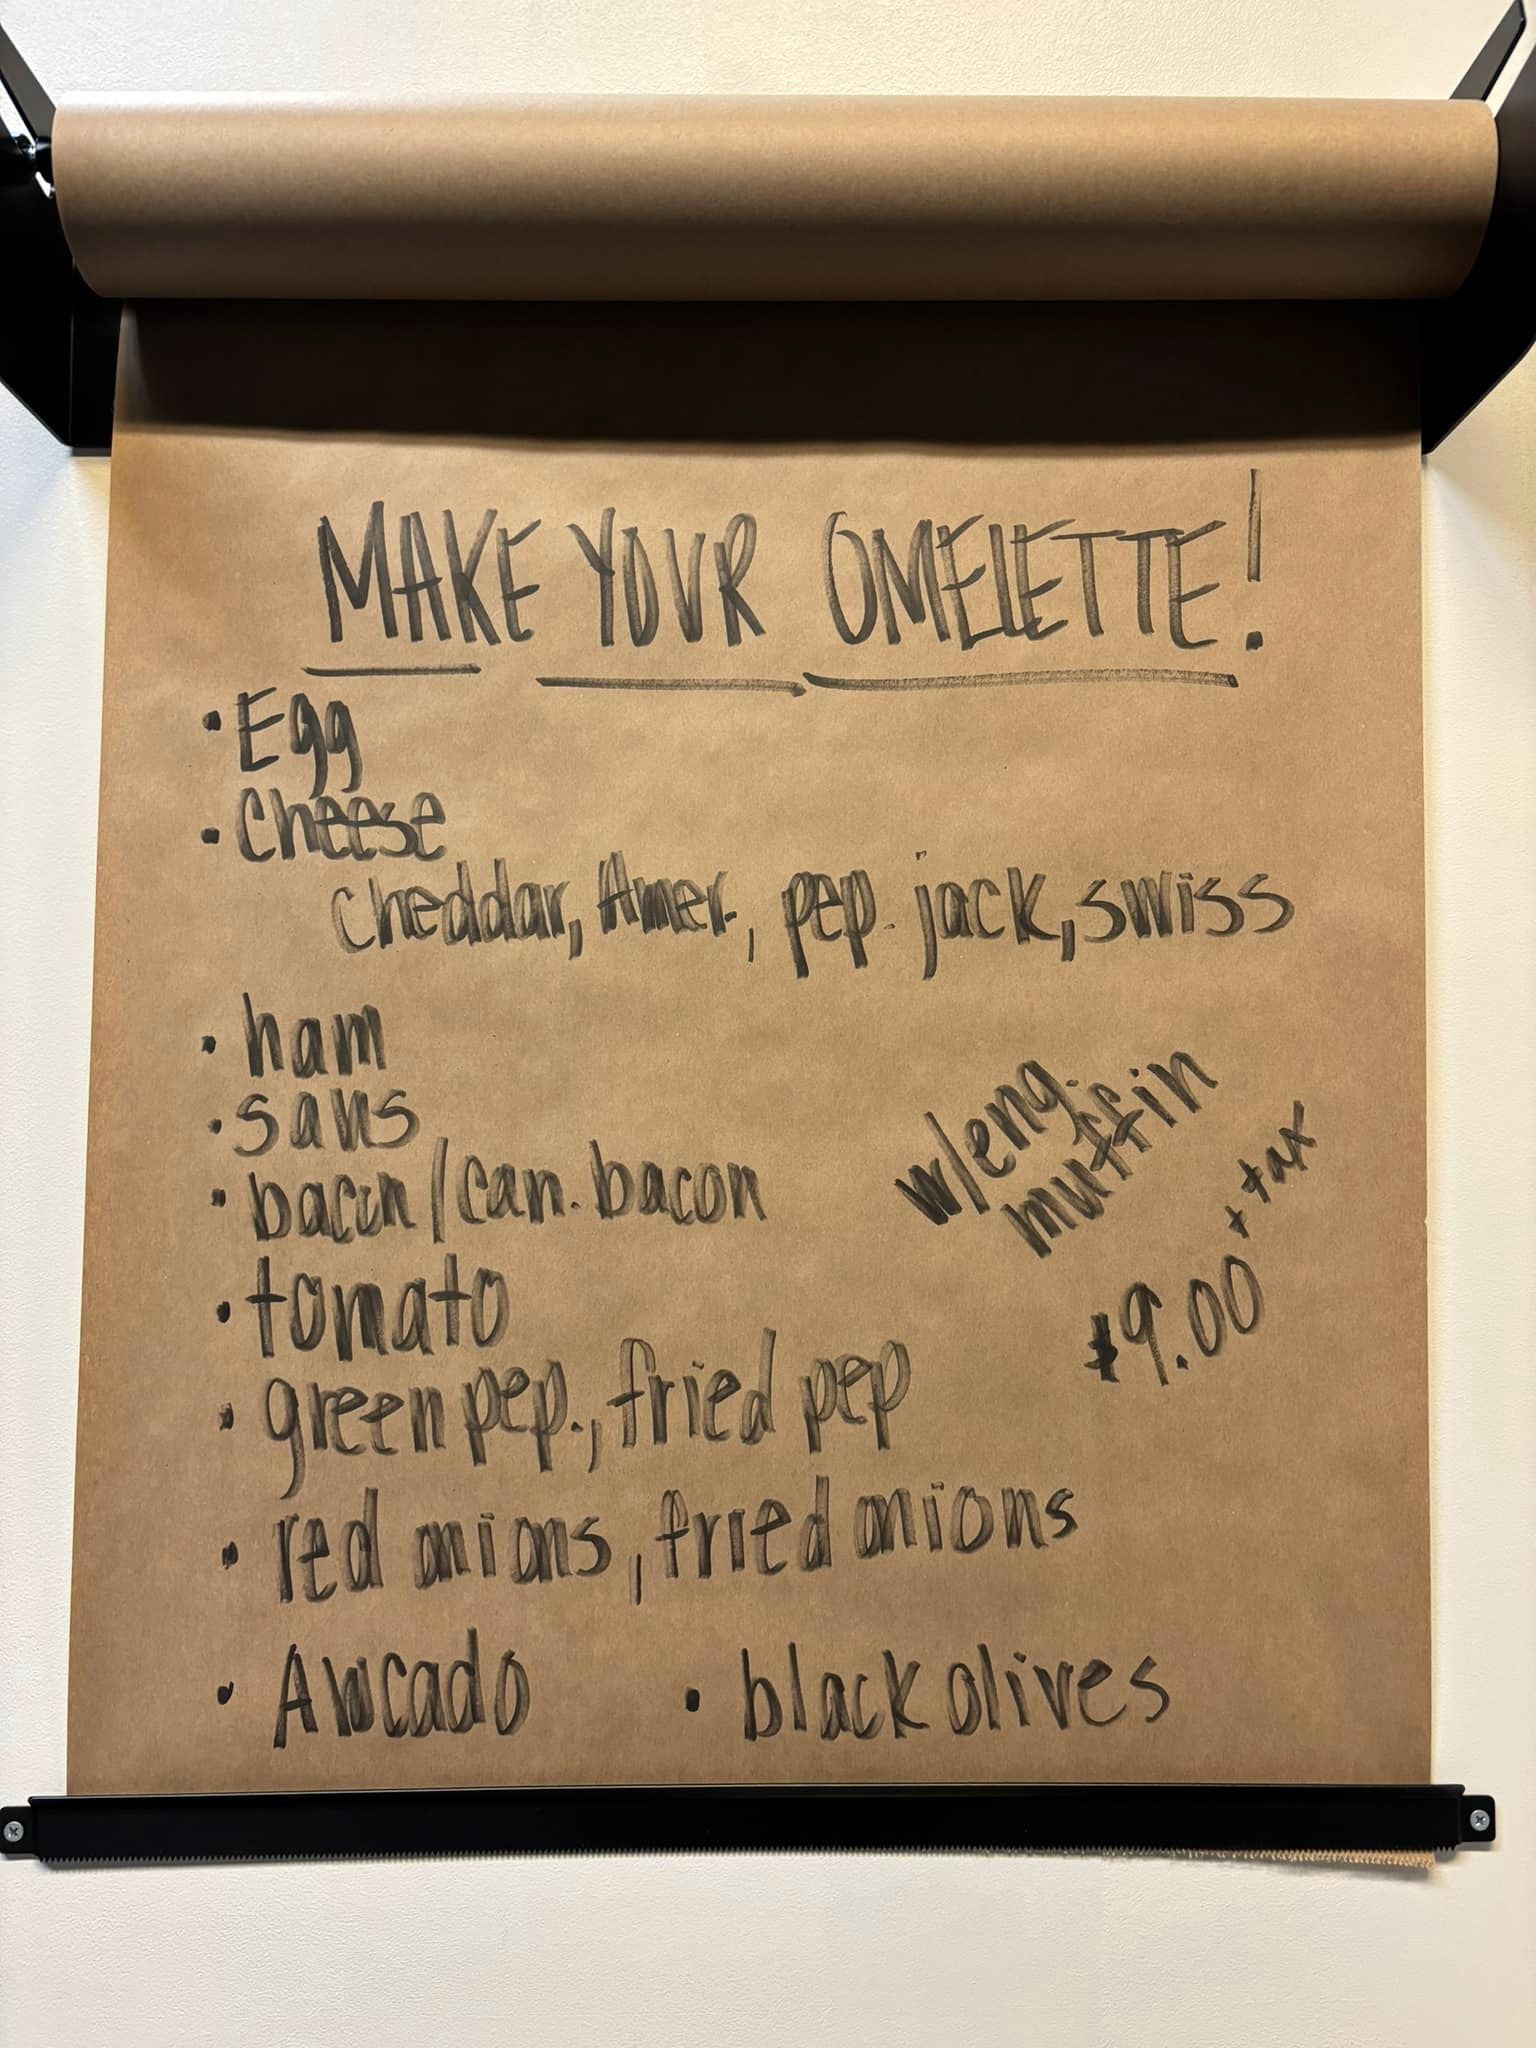 MAKE YOUR OMELETTE!
• Egg
• Cheese
cheddar, Amer., pep. jack, swiss
• ham
• saus
• bacon/can. bacon
• tomato
• green pep., fried pep
• red onions, fried onions
• Avocado • black olives
w/eng.
muffin
$9.00 + tax